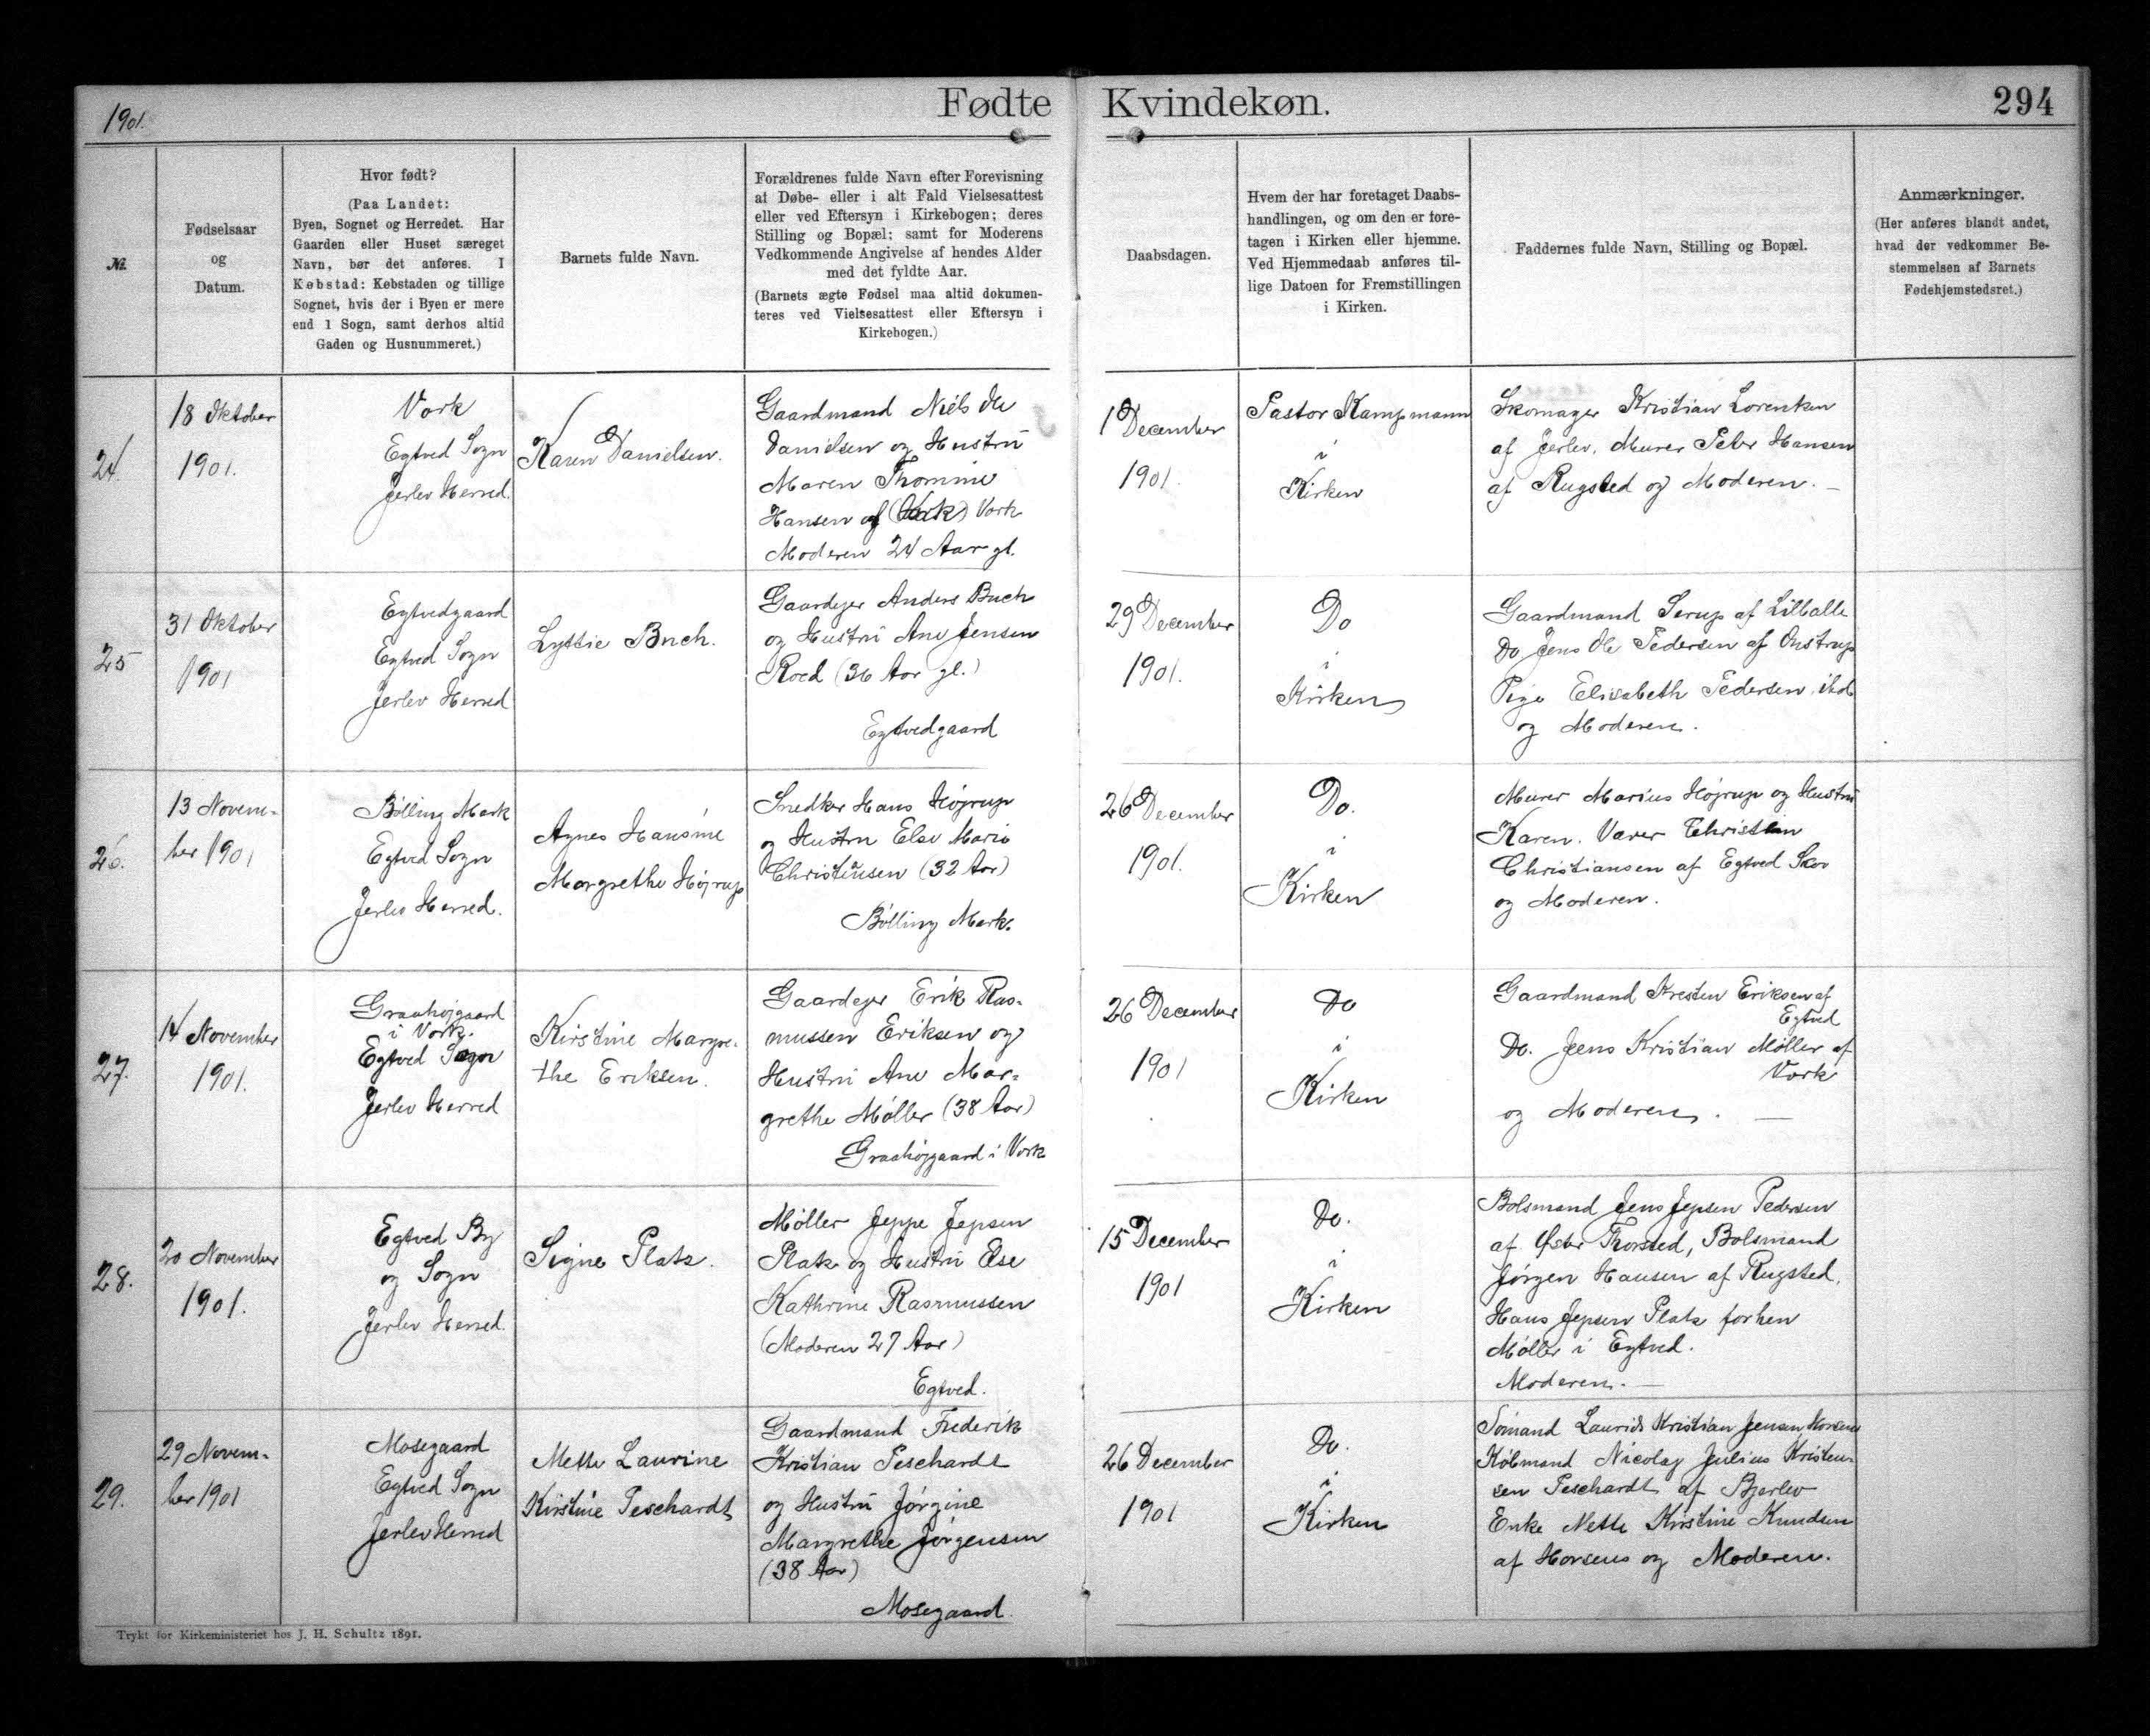 1901.
Fødte Kvindekøn.
294
№.
Fødselsaar
og
Datum.
Hvor født?
(Paa Landet:
Byen, Sognet og Herredet. Har
Gaarden eller Huset særeget
Navn, bør det anføres. I
Købstad: Købstaden og tillige
Sognet, hvis der i Byen er mere
end 1 Sogn, samt derhos altid
Gaden og Husnummeret.)
Barnets fulde Navn.
Forældrenes fulde Navn efter Forevisning
af Døbe- eller i alt Fald Vielsesattest
eller ved Eftersyn i Kirkebogen; deres
Stilling og Bopæl; samt for Moderens
Vedkommende Angivelse af hendes Alder
med det fyldte Aar.
(Barnets ægte Fødsel maa altid dokumen-
teres ved Vielsesattest eller Eftersyn i
Kirkebogen.)
Daabsdagen.
Hvem der har foretaget Daabs-
handlingen, og om den er fore-
tagen i Kirken eller hjemme.
Ved Hjemmedaab anføres til-
lige Datoen for Fremstillingen
i Kirken.
Faddernes fulde Navn, Stilling og Bopæl.
Anmærkninger.
(Her anføres blandt andet,
hvad der vedkommer Be-
stemmelsen af Barnets
Fødehjemstedsret.)
24.
18 Oktober
1901.
Vork
Egtved Sogn
Jerlev Herred.
Karen Danielsen.
Gaardmand Niels Ole
Danielsen og Hustru
Maren Thomine
Hansen af Vork
Moderen 24 Aar gl.
1 December
1901.
Pastor Kampmann
i
Kirken
Skomager Kristian Lorenken
af Jerlev. Murer Peter Hansen
af Rugsted og Moderen. —
25
31 Oktober
1901
Egtvedgaard
Egtved Sogn
Jerlev Herred
Lyttie Buch.
Gaardejer Anders Buch
og Hustru Ane Jensen
Roed (36 Aar gl.)
Egtvedgaard
29 December
1901.
Do
i
Kirken
Gaardmand Serup af Lilballe
Do Jens Ole Pedersen af Onstrup
Pige Elisabeth Pedersen ibd.
og Moderen.
26.
13 Novem-
ber 1901
Bølling Mark
Egtved Sogn
Jerlev Herred.
Agnes Hansine
Margrethe Højrup
Snedker Hans Højrup
og Hustru Else Marie
Christiansen (32 Aar)
Bølling Mark.
26 December
1901.
Do.
i
Kirken
Murer Marius Højrup og Hustru
Karen. Væver Christian
Christiansen af Egtved Skov
og Moderen.
27.
14 November
1901.
Graahøjgaard
i Vork.
Egtved Sogn
Jerlev Herred
Kirstine Margre-
the Eriksen.
Gaardejer Erik Ras-
mussen Eriksen og
Hustru Ane Mar-
grethe Møller (38 Aar)
Graahøjgaard i Vork
26 December
1901
Do
i
Kirken
Gaardmand Kresten Eriksen af
Egtved
Do. Jens Kristian Møller af
Vork
og Moderen. —
28.
20 November
1901.
Egtved By
og Sogn
Jerlev Herred.
Signe Platz.
Møller Jeppe Jepsen
Platz og Hustru Else
Kathrine Rasmussen
(Moderen 27 Aar)
Egtved.
15 December
1901
Do.
i
Kirken
Bolsmand Jens Jepsen Pedersen
af Øster Thorsted, Bolsmand
Jørgen Hansen af Rugsted.
Hans Jepsen Platz forhen
Møller i Egtved.
Moderen. —
29.
29 Novem-
ber 1901
Mosegaard
Egtved Sogn
Jerlev Herred
Mette Laurine
Kirstine Peschardt
Gaardmand Frederik
Kristian Peschardt
og Hustru Jørgine
Margrethe Jørgensen
(38 Aar)
Mosegaard.
26 December
1901
Do.
i
Kirken
Sømand Laurids Kristian Jensen Horsens
Købmand Nicolay Julius Kristen-
sen Peschardt af Bjerlev
Enke Mette Kirstine Knudsen
af Horsens og Moderen.
Trykt for Kirkeministeriet hos J. H. Schultz 1891.